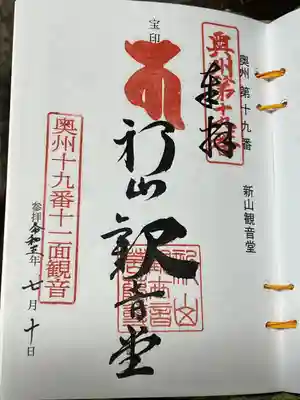 奥州 第十九番 新山観音堂
奉拝
宝印
新山観音堂
奥州十九番十一面観音
参拝 令和三年 七月十日